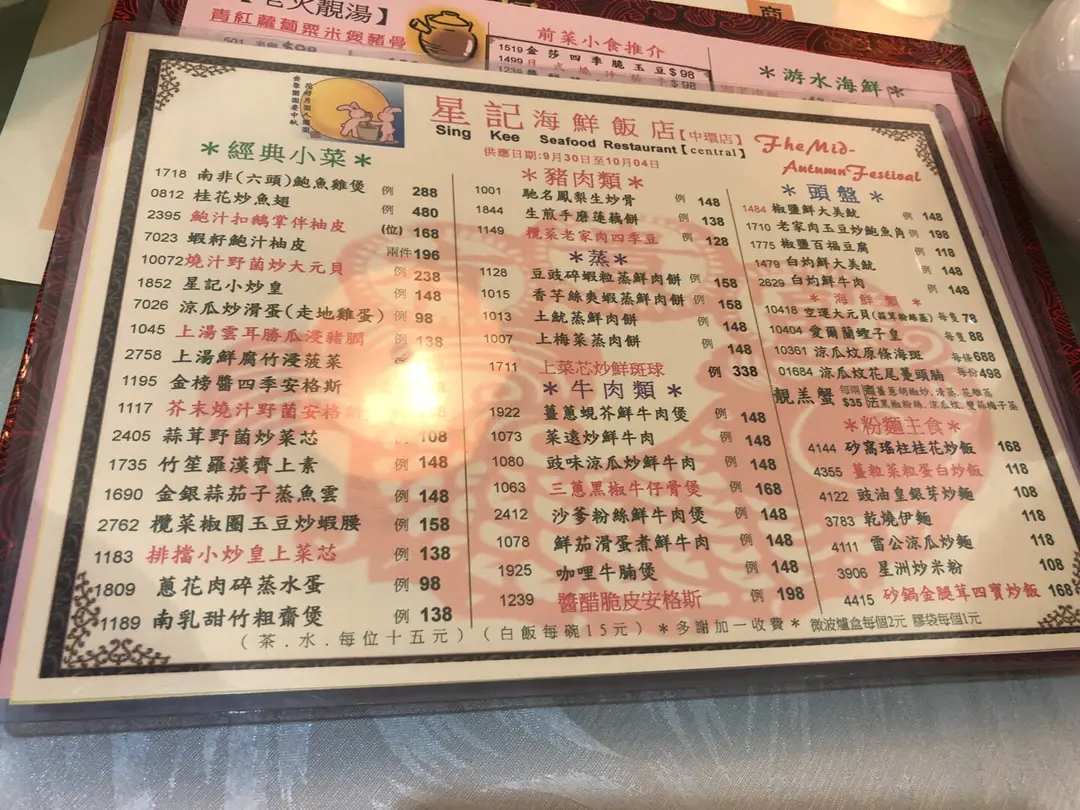 老火靚湯】
青紅蘿蔔粟米煲豬骨
前菜小食推介
1519 金莎四季脆玉豆 $98
1499
＊游水海鮮＊
星記海鮮飯店【中環店】
Sing Kee Seafood Restaurant【central】
供應日期:9月30日至10月04日
The Mid-
Autumn Festival
＊經典小菜＊
1718 南非(六頭)鮑魚雞煲 例 288
0812 桂花炒魚翅 例 480
2395 鮑汁扣鵝掌伴柚皮 (位) 168
7023 蝦籽鮑汁柚皮 兩件 196
10072 燒汁野菌炒大元貝 例 238
1852 星記小炒皇 例 148
7026 涼瓜炒滑蛋(走地雞蛋) 例 98
1045 上湯雲耳勝瓜浸豬膶 例 138
2758 上湯鮮腐竹浸菠菜
1195 金榜醬四季安格斯
1117 芥末燒汁野菌安格
2405 蒜茸野菌炒菜芯 108
1735 竹笙羅漢齊上素 例 148
1690 金銀蒜茄子蒸魚雲 例 148
2762 欖菜椒圈玉豆炒蝦腰 例 158
1183 排擋小炒皇上菜芯 例 138
1809 蔥花肉碎蒸水蛋 例 98
1189 南乳甜竹粗齋煲 例 138
＊豬肉類＊
1001 馳名鳳梨生炒骨 例 148
1844 生煎手磨蓮藕餅 例 138
1149 欖菜老家肉四季豆 例 128
＊蒸＊
1128 豆豉碎蝦粒蒸鮮肉餅 例 158
1015 香芋絲爽蝦蒸鮮肉餅 例 158
1013 土魷蒸鮮肉餅 例 148
1007 上梅菜蒸肉餅 例 148
1711 上菜芯炒鮮斑球 例 338
＊牛肉類＊
1922 薑蔥蜆芥鮮牛肉煲 例 148
1073 菜遠炒鮮牛肉 例 148
1080 豉味涼瓜炒鮮牛肉 例 148
1063 三蔥黑椒牛仔骨煲 例 168
2412 沙爹粉絲鮮牛肉煲 例 148
1078 鮮茄滑蛋煮鮮牛肉 例 148
1925 咖哩牛腩煲 例 148
1239 醬醋脆皮安格斯 例 198
＊頭盤＊
1484 椒鹽鮮大美魷 例 148
1710 老家肉玉豆炒鮑魚角 例 198
1775 椒鹽百福豆腐 例 118
1479 白灼鮮大美魷 例 148
2629 白灼鮮牛肉 例 148
＊海鮮類＊
10418 空運大元貝(蒜茸粉絲蒸) 每隻 78
10404 愛爾蘭蟶子皇 每隻 88
10361 涼瓜炆原條海斑 每條 688
01684 涼瓜炆花尾躉頭腩 每份 498
靚羔蟹 每兩 $35
薑蔥胡椒炒,清蒸,花雕蒸
黑椒粉絲,涼瓜炆,雙蒜梅子蒸
＊粉麵主食＊
4144 砂窩瑤柱桂花炒飯 168
4355 薑粒菜粒蛋白炒飯 118
4122 豉油皇銀芽炒麵 108
3783 乾燒伊麵 118
4111 雷公涼瓜炒麵 118
3906 星洲炒米粉 108
4415 砂鍋金腿茸四寶炒飯 168
(茶．水．每位十五元)(白飯每碗15元)＊多謝加一收費＊ 微波爐盒每個2元 膠袋每個1元